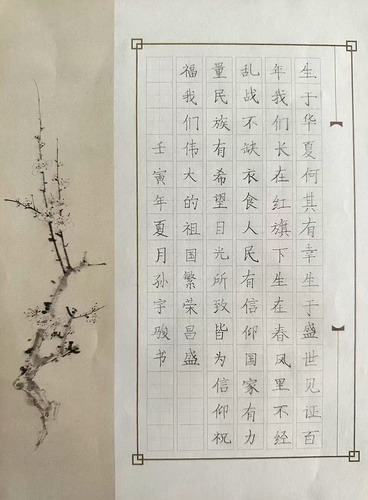 生于华夏何其有幸生于盛世见证百
年我们长在红旗下生在春风里不经
乱战不缺衣食人民有信仰国家有力
量民族有希望目光所致皆为信仰祝
福我们伟大的祖国繁荣昌盛
壬寅年夏月孙宇骏书